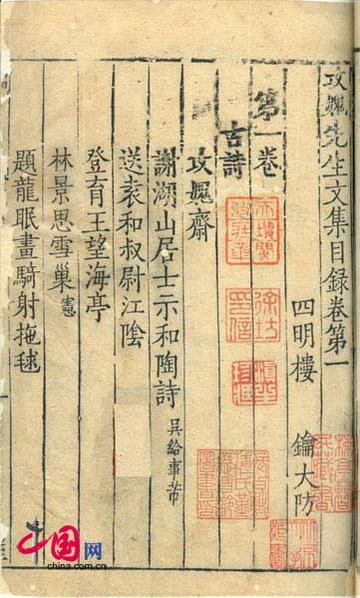 攻媿先生文集目錄卷第一
四明樓 鑰大防
第一卷
古詩
攻媿齋
謝湖山居士示和陶詩 吳給事芾
送袁和叔尉江陰
登育王望海亭
林景思雪巢 憲
題龍眠畫騎射抱毬
中国网
china.com.cn